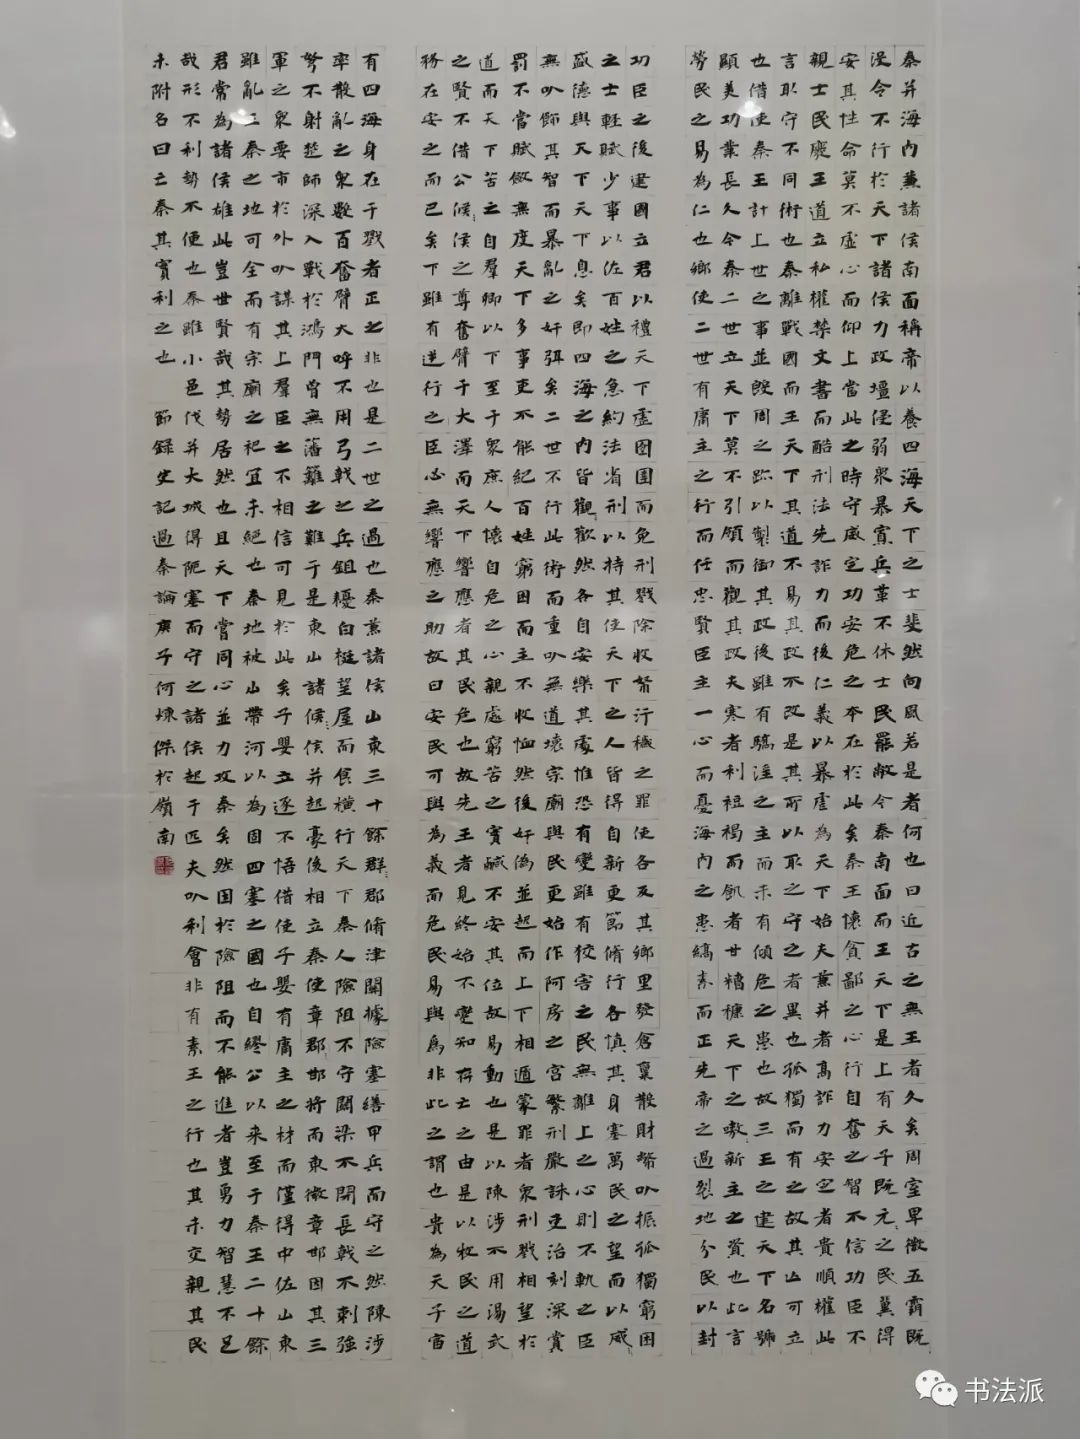 秦并海内兼諸侯南面稱帝以養四海天下之士斐然向風若是者何也曰近古之無王者久矣周室卑微五霸既
没令不行於天下諸侯力政壇侵弱衆暴寡兵革不休士民罷敝今秦南面而王天下是上有天子既元元之民冀得
安其性命莫不虛心而仰上當此之時守威定功安危之本在於此矣秦王懷貪鄙之心行自奮之智不信功臣不
親士民廢王道立私權禁文書而酷刑法先詐力而後仁義以暴虐為天下始夫兼并者高詐力安定者貴順權此
言取守不同術也秦離戰國而王天下其道不易其政不改是其所以取之守之者異也孤獨而有之故其亡可立
也借使秦王計上世之事並殷周之跡以製御其政後雖有驕淫之主而未有傾危之患也故三王之建天下名號
顯美功業長久今秦二世立天下莫不引領而觀其政夫寒者利裋褐而飢者甘糟糠天下之嗷新主之資也此言
勞民之易為仁也鄉使二世有庸主之行而任忠賢臣主一心而憂海内之患縞素而正先帝之過裂地分民以封
功臣之後建國立君以禮天下虛囹圄而免刑戮除收帑汙穢之罪使各反其鄉里發倉稟散財幣以振孤獨窮困
之士輕賦少事以佐百姓之急約法省刑以持其後使天下之人皆得自新更節脩行各慎其身塞萬民之望而以威
盛德與天下天下息矣即四海之内皆觀歡然各自安樂其處惟恐有變雖有狡害之民無離上之心則不軌之臣
無以飾其智而暴亂之奸弭矣二世不行此術而重以無道壞宗廟與民更始作阿房之宮繁刑嚴誅吏治刻深賞
罰不當賦斂無度天下多事吏不能紀百姓窮困而主不收恤然後奸偽並起而上下相遁蒙罪者衆刑戮相望於
道而天下苦之自羣卿以下至于衆庶人懷自危之心親處窮苦之實咸不安其位故易動也是以陳涉不用湯武
之賢不借公候侯之尊奮臂于大澤而天下響應者其民危也故先王者見終始不變知存亡之由是以牧民之道
務在安之而已矣下雖有逆行之臣必無響應之助故曰安民可與為義而危民易與為非此之謂也貴為天子富
有四海身在于戮者正之非也是二世之過也秦兼諸侯山東三十餘群郡脩津關據險塞繕甲兵而守之然陳涉
率散亂之衆數百奮臂大呼不用弓戟之兵鉏櫌白梃望屋而食橫行天下秦人險阻不守關梁不閉長戟不刺強
弩不射楚師深入戰於鴻門曾無藩籬之難于是東山諸候侯并起豪俊相立秦使章郡邯將而東徵章邯因其三
軍之衆要市於外以謀其上羣臣之不相信可見於此矣子嬰立遂不悟借使子嬰有庸主之材而僅得中佐山東
雖亂三秦之地可全而有宗廟之祀宜未絕也秦地被山帶河以為固四塞之國也自繆公以来至于秦王二十餘
君常為諸侯雄此豈世賢哉其勢居然也且天下嘗同心並力攻秦矣然困於險阻而不能進者豈勇力智慧不足
哉形不利勢不便也秦雖小邑伐并大城得阨塞而守之諸侯起于匹夫以利會非有素王之行也其未交親其民
未附名曰亡秦其實利之也
節録史記過秦論庚子何煉傑於嶺南
书法派